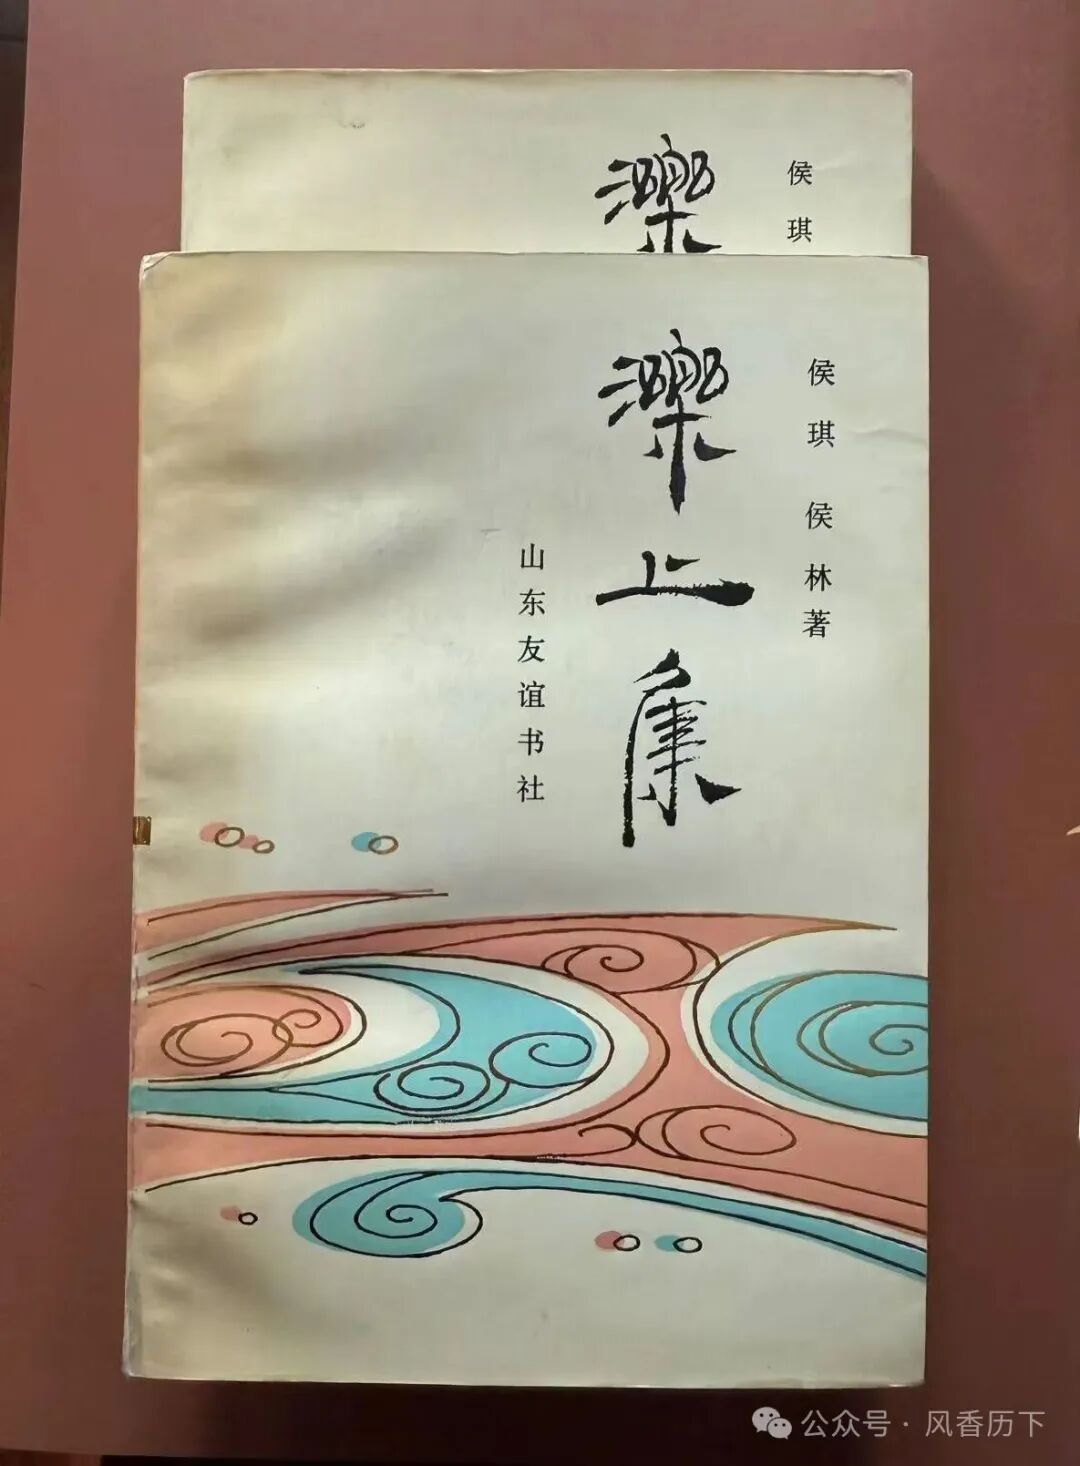 濼
侯琪
侯琪 侯林著
濼上集
山东友谊书社
公众号·风香历下